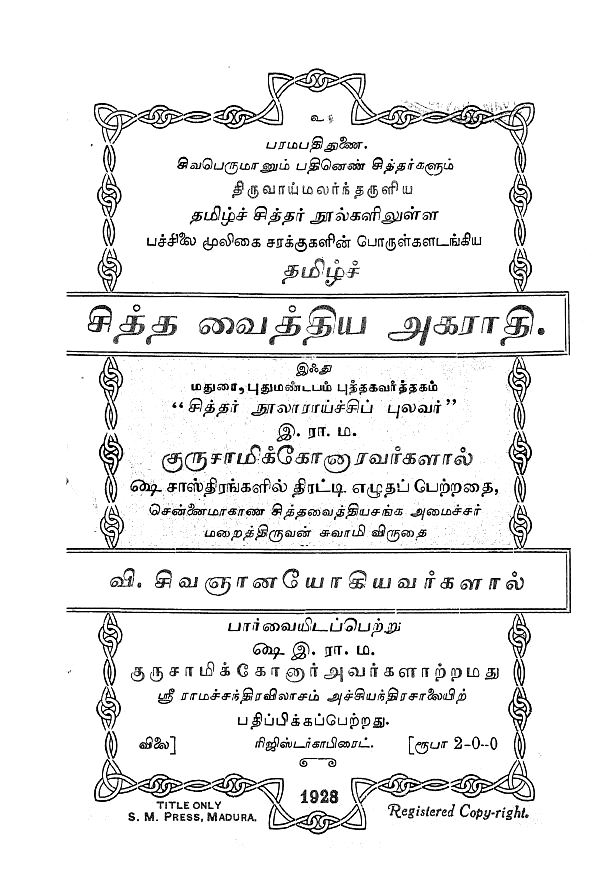 உ
பரமபதிதுணை.
சிவபெருமானும் பதினெண் சித்தர்களும்
திருவாய்மலர்ந்தருளிய
தமிழ்ச் சித்தர் நூல்களிலுள்ள
பச்சிலை மூலிகை சரக்குகளின் பொருள்களடங்கிய
தமிழ்ச்
சித்த வைத்திய அகராதி.
இஃது
மதுரை, புதுமண்டபம் புத்தகவர்த்தகம்
“சித்தர் நூலாராய்ச்சிப் புலவர்”
இ. ரா. ம.
குருசாமிக்கோனாரவர்களால்
௸ சாஸ்திரங்களில் திரட்டி எழுதப் பெற்றதை,
சென்னைமாகாண சித்தவைத்தியசங்க அமைச்சர்
மறைத்திருவன் சுவாமி விருதை
வி. சிவஞானயோகியவர்களால்
பார்வையிடப்பெற்று
௸ இ. ரா. ம.
குருசாமிக்கோனார் அவர்களாற்றமது
ஸ்ரீ ராமச்சந்திரவிலாசம் அச்சியந்திரசாலையிற்
பதிப்பிக்கப்பெற்றது.
விலை] ரிஜிஸ்டர்காபிரைட். [ரூபா 2-0-0
1928
TITLE ONLY
S. M. PRESS, MADURA.
Registered Copy-right.